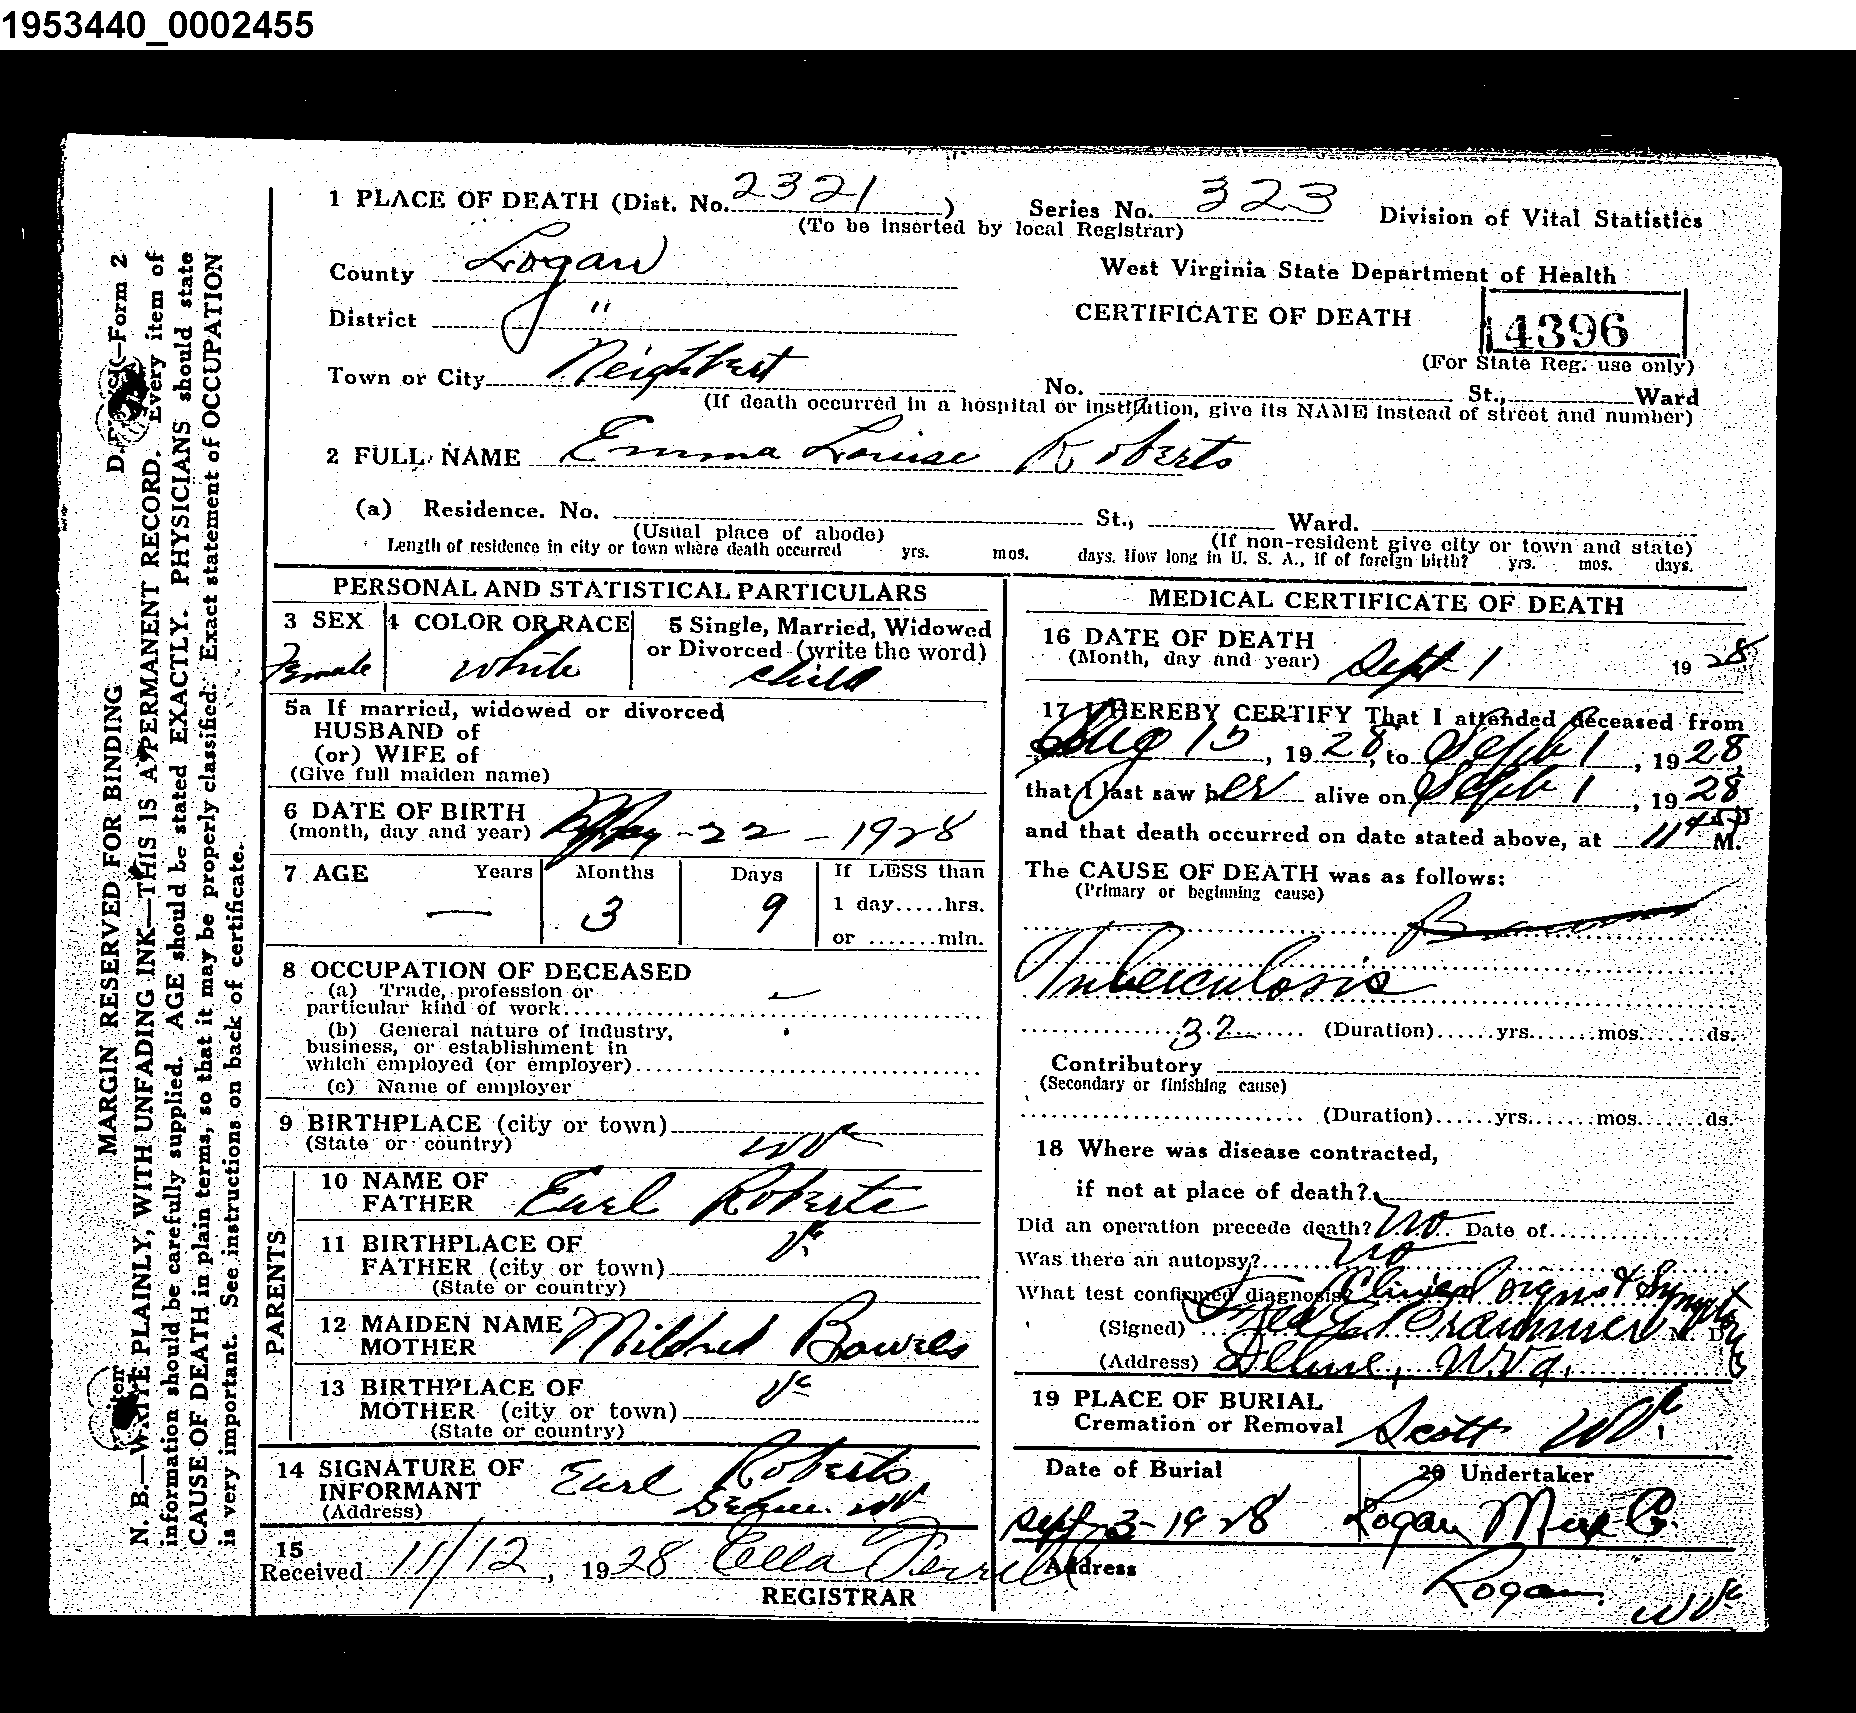 1953440_0002455
1 PLACE OF DEATH (Dist. No. 2321 ) Series No. 323 Division of Vital Statistics
(To be inserted by local Registrar)
County Logan West Virginia State Department of Health
District " CERTIFICATE OF DEATH 14396
(For State Reg. use only)
Town or City Neighbert No. St., Ward
(If death occurred in a hospital or institution, give its NAME instead of street and number)
2 FULL NAME Emma Louise Roberts
(a) Residence. No. St., Ward.
(Usual place of abode) (If non-resident give city or town and state)
Length of residence in city or town where death occurred yrs. mos. days. How long in U. S. A., if of foreign birth? yrs. mos. days.
PERSONAL AND STATISTICAL PARTICULARS
3 SEX 4 COLOR OR RACE 5 Single, Married, Widowed
or Divorced (write the word)
Female White Child
5a If married, widowed or divorced
HUSBAND of
(or) WIFE of
(Give full maiden name)
6 DATE OF BIRTH
(month, day and year) May - 22 - 1928
7 AGE Years Months Days If LESS than
— 3 9 1 day.....hrs.
or .......min.
8 OCCUPATION OF DECEASED
(a) Trade, profession or
particular kind of work
(b) General nature of industry,
business, or establishment in
which employed (or employer)
(c) Name of employer
9 BIRTHPLACE (city or town)
(State or country) W Va
PARENTS
10 NAME OF
FATHER Earl Roberts
11 BIRTHPLACE OF
FATHER (city or town) Va
(State or country)
12 MAIDEN NAME
MOTHER Mildred Bowles
13 BIRTHPLACE OF
MOTHER (city or town) Va
(State or country)
14 SIGNATURE OF
INFORMANT Earl Roberts
(Address) Dehue W Va
15
Received 11/12, 1928 Ella Perrill
REGISTRAR
MEDICAL CERTIFICATE OF DEATH
16 DATE OF DEATH
(Month, day and year) Sept 1 1928
17 I HEREBY CERTIFY That I attended deceased from
Aug 15, 1928, to Sept 1, 1928,
that I last saw her alive on Sept 1, 1928
and that death occurred on date stated above, at 11 45 P M.
The CAUSE OF DEATH was as follows:
(Primary or beginning cause)
Tuberculosis
32 (Duration)......yrs.......mos.......ds.
Contributory
(Secondary or finishing cause)
(Duration)......yrs.......mos.......ds.
18 Where was disease contracted,
if not at place of death?
Did an operation precede death? No Date of
Was there an autopsy? No
What test confirmed diagnosis? Clinical signs & Symptoms
(Signed) Brammer M. D.
(Address) Dehue, W.Va.
19 PLACE OF BURIAL
Cremation or Removal Scott W Va.
Date of Burial 20 Undertaker
Sept 3 - 1928 Logan Mer Co.
Address
Logan W Va
MARGIN RESERVED FOR BINDING
Form 2
N. B.—WRITE PLAINLY, WITH UNFADING INK—THIS IS A PERMANENT RECORD. Every item of
information should be carefully supplied. AGE should be stated EXACTLY. PHYSICIANS should state
CAUSE OF DEATH in plain terms, so that it may be properly classified. Exact statement of OCCUPATION
is very important. See instructions on back of certificate.